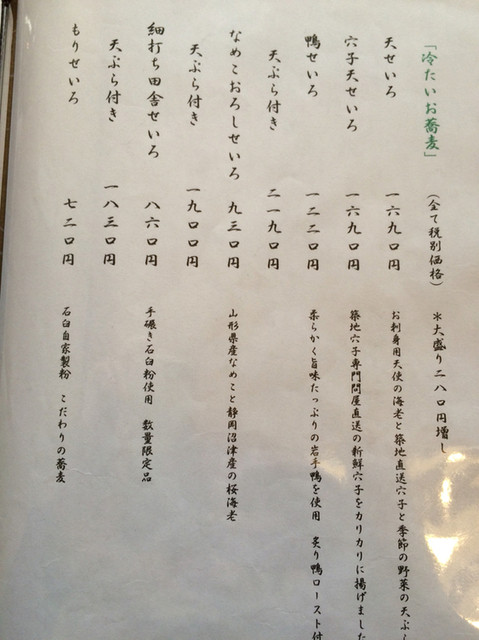 「冷たいお蕎麦」 (全て税別価格) *大盛り二八〇円増し
天せいろ 一六九〇円 お刺身用天使の海老と築地直送穴子と季節の野菜の天ぷ
穴子天せいろ 一六九〇円 築地穴子専門問屋直送の新鮮穴子をカリカリに揚げました
鴨せいろ 一二二〇円 柔らかく旨味たっぷりの岩手鴨を使用 炙り鴨ロースト付
天ぷら付き 二一九〇円
なめこおろしせいろ 九三〇円 山形県産なめこと静岡沼津産の桜海老
天ぷら付き 一九〇〇円
細打ち田舎せいろ 八六〇円 手碾き石臼粉使用 数量限定品
天ぷら付き 一八三〇円
もりせいろ 七二〇円 石臼自家製粉 こだわりの蕎麦